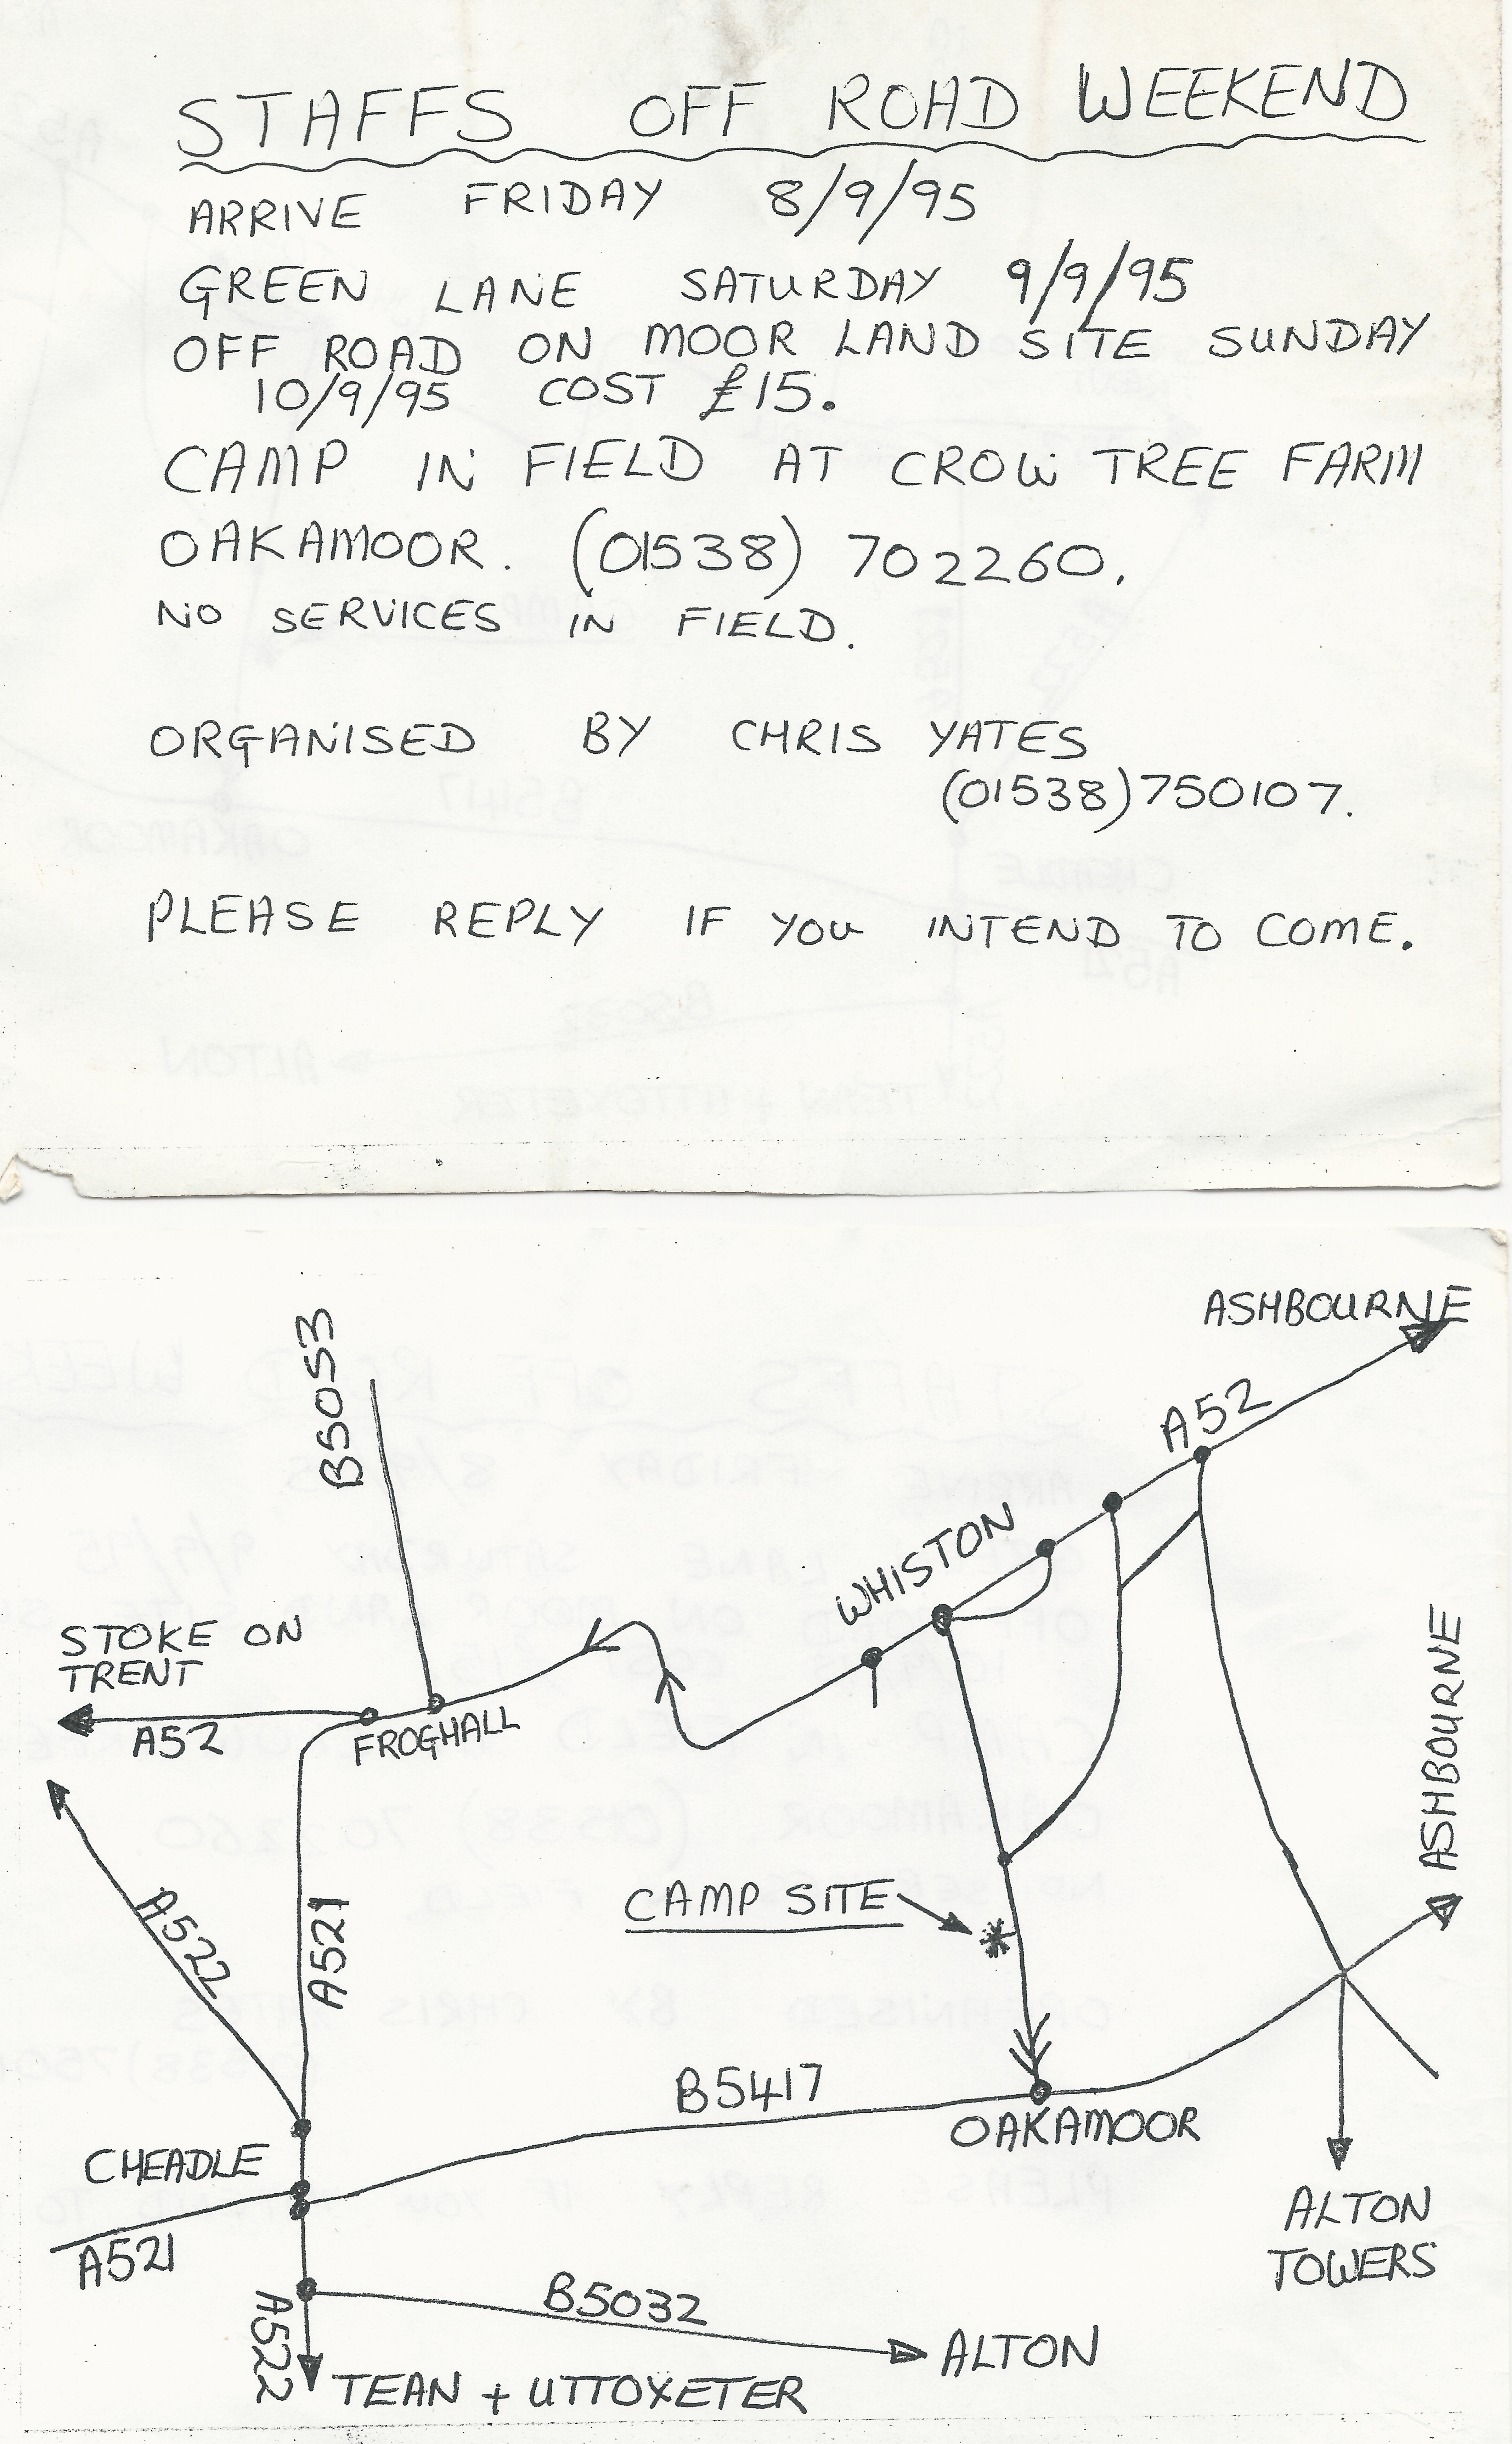 STAFFS OFF ROAD WEEKEND
ARRIVE FRIDAY 8/9/95
GREEN LANE SATURDAY 9/9/95
OFF ROAD ON MOOR LAND SITE SUNDAY
10/9/95 COST £15.
CAMP IN FIELD AT CROW TREE FARM
OAKAMOOR. (01538) 702260.
NO SERVICES IN FIELD.
ORGANISED BY CHRIS YATES
(01538) 750107.
PLEASE REPLY IF YOU INTEND TO COME.
ASHBOURNE
B5053
A52
WHISTON
STOKE ON
TRENT
A52
FROGHALL
ASHBOURNE
A522
A521
CAMP SITE
B5417
OAKAMOOR
CHEADLE
A521
ALTON
TOWERS
A522
B5032
ALTON
TEAN + UTTOXETER